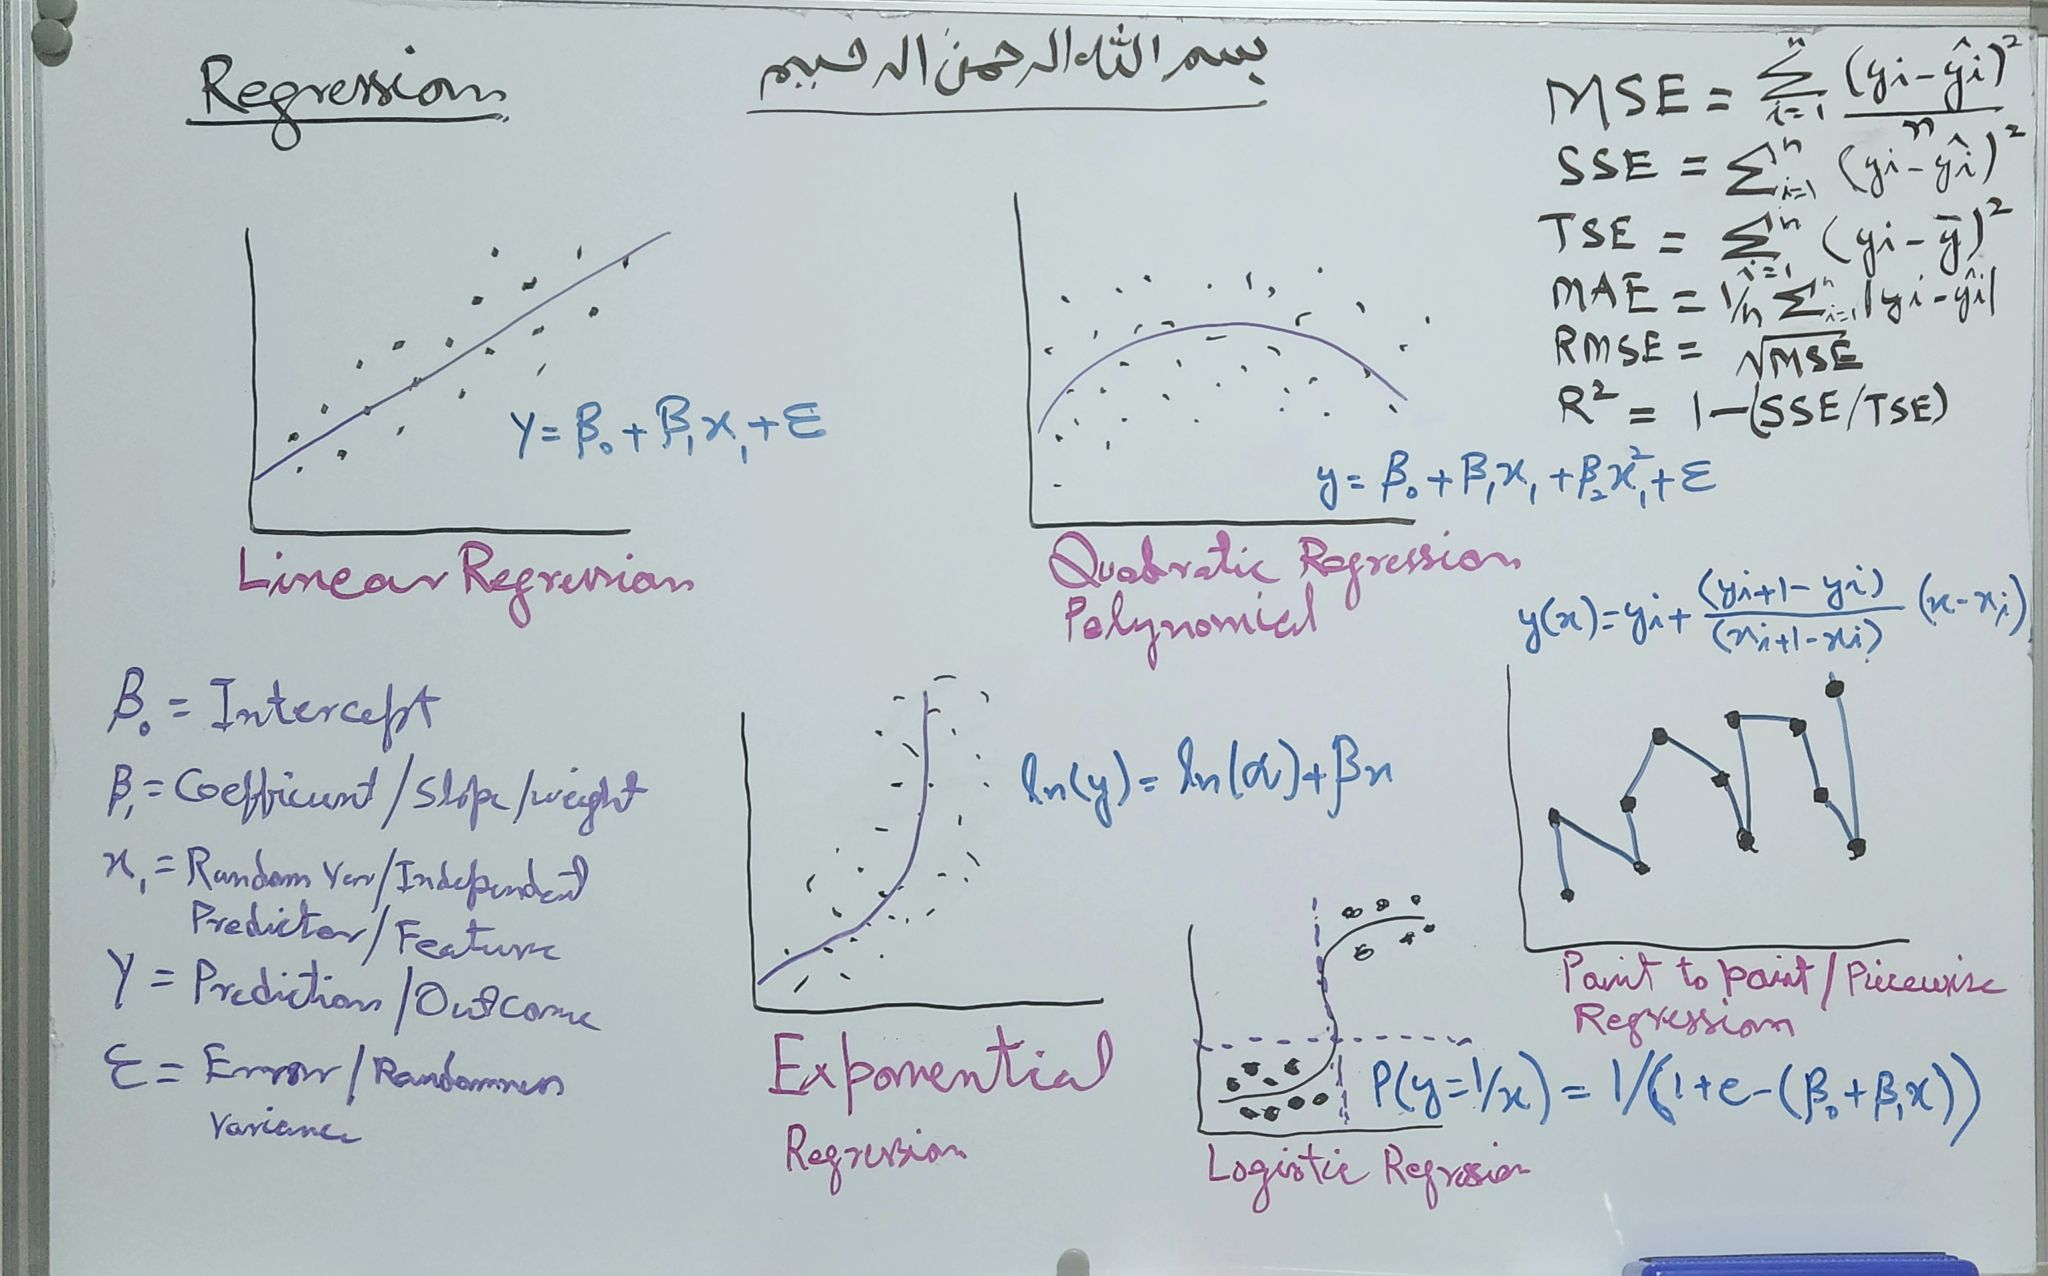 Regression
بسم الله الرحمن الرحيم
MSE = Σ i=1 n (yi-ŷi)² / n
SSE = Σ i=1 n (yi-ŷi)²
TSE = Σ i=1 n (yi-ȳ)²
MAE = 1/n Σ i=1 n |yi-ŷi|
RMSE = √MSE
R² = 1-(SSE/TSE)
Y = β₀ + β₁x₁ + ε
Linear Regression
y = β₀ + β₁x₁ + β₂x₁² + ε
Quadratic Regression
Polynomial
y(x) = yi + (yi+1 - yi) / (xi+1 - xi) (x-xi)
Point to point / Piecewise
Regression
β₀ = Intercept
β₁ = Coefficient / Slope / weight
x₁ = Random Var / Independent
Predictor / Feature
Y = Prediction / Outcome
ε = Error / Randomness
Variance
ln(y) = ln(α) + βx
Exponential
Regression
P(y=1/x) = 1/(1+e-(β₀+β₁x))
Logistic Regression